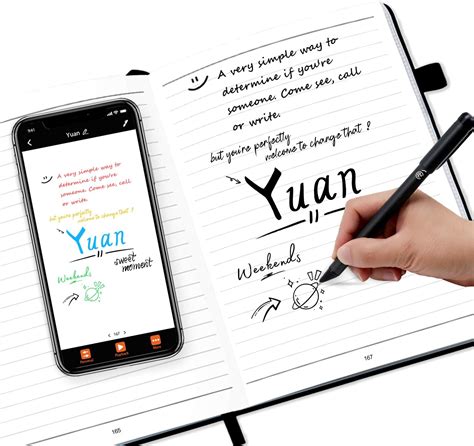 9:41
Yuan
A very simple way to
determine if you're
someone. Come see, call
or write.
but you're perfectly
welcome to change that ?
Yuan
sweet
moment
Weekends
167
Playback
More
165
A very simple way to
determine if you're
someone. Come see, call
or write.
but you're perfectly
welcome to change that ?
Yuan
Weekends
167